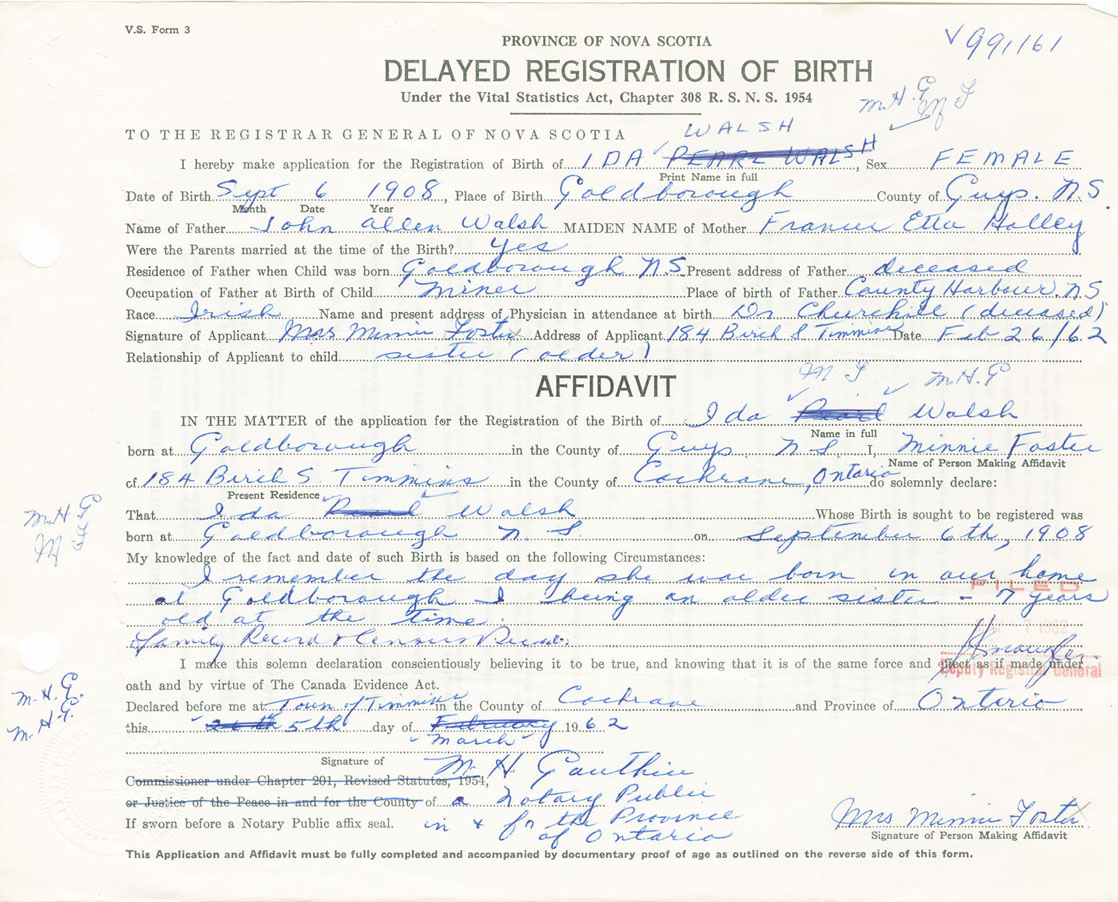 V.S. Form 3
991161
PROVINCE OF NOVA SCOTIA
DELAYED REGISTRATION OF BIRTH
Under the Vital Statistics Act, Chapter 308 R. S. N. S. 1954
M.H.G
M F
TO THE REGISTRAR GENERAL OF NOVA SCOTIA
WALSH
I hereby make application for the Registration of Birth of IDA PEARL WALSH, Sex FEMALE
Print Name in full
Date of Birth Sept 6 1908, Place of Birth Goldborough County of Guys. N.S.
Month Date Year
Name of Father John Allen Walsh MAIDEN NAME of Mother Frances Etta Holley
Were the Parents married at the time of the Birth? Yes
Residence of Father when Child was born Goldborough N.S. Present address of Father deceased
Occupation of Father at Birth of Child Miner Place of birth of Father County Harbour. N.S
Race Irish Name and present address of Physician in attendance at birth Dr Churchill (deceased)
Signature of Applicant Mrs Minnie Foster Address of Applicant 184 Birch S Timmins Date Feb 26/62
Relationship of Applicant to child sister (older)
AFFIDAVIT
M F M.H.G
IN THE MATTER of the application for the Registration of the Birth of Ida Pearl Walsh
Name in full
born at Goldborough in the County of Guys. N.S. I, Minnie Foster
Name of Person Making Affidavit
of 184 Birch S. Timmins in the County of Cochrane, Ontario do solemnly declare:
Present Residence
That Ida Pearl Walsh Whose Birth is sought to be registered was
M.H G
M F
born at Goldborough N S. on September 6th, 1908
My knowledge of the fact and date of such Birth is based on the following Circumstances:
I remember the day she was born in our home
at Goldborough I being an older sister - 7 years
old at the time.
FILED
Family Record & Census
I make this solemn declaration conscientiously believing it to be true, and knowing that it is of the same force and effect as if made under
Deputy Registrar General
oath and by virtue of The Canada Evidence Act.
M.H.G.
M.H.G.
Declared before me at Town of Timmins in the County of Cochrane and Province of Ontario
this 26th 5th day of February 1962
March
Signature of M. H. Gauthier
Commissioner under Chapter 201, Revised Statutes, 1954,
or Justice of the Peace in and for the County of a Notary Public
If sworn before a Notary Public affix seal. in & for the Province
of Ontario
Mrs Minnie Foster
Signature of Person Making Affidavit
This Application and Affidavit must be fully completed and accompanied by documentary proof of age as outlined on the reverse side of this form.